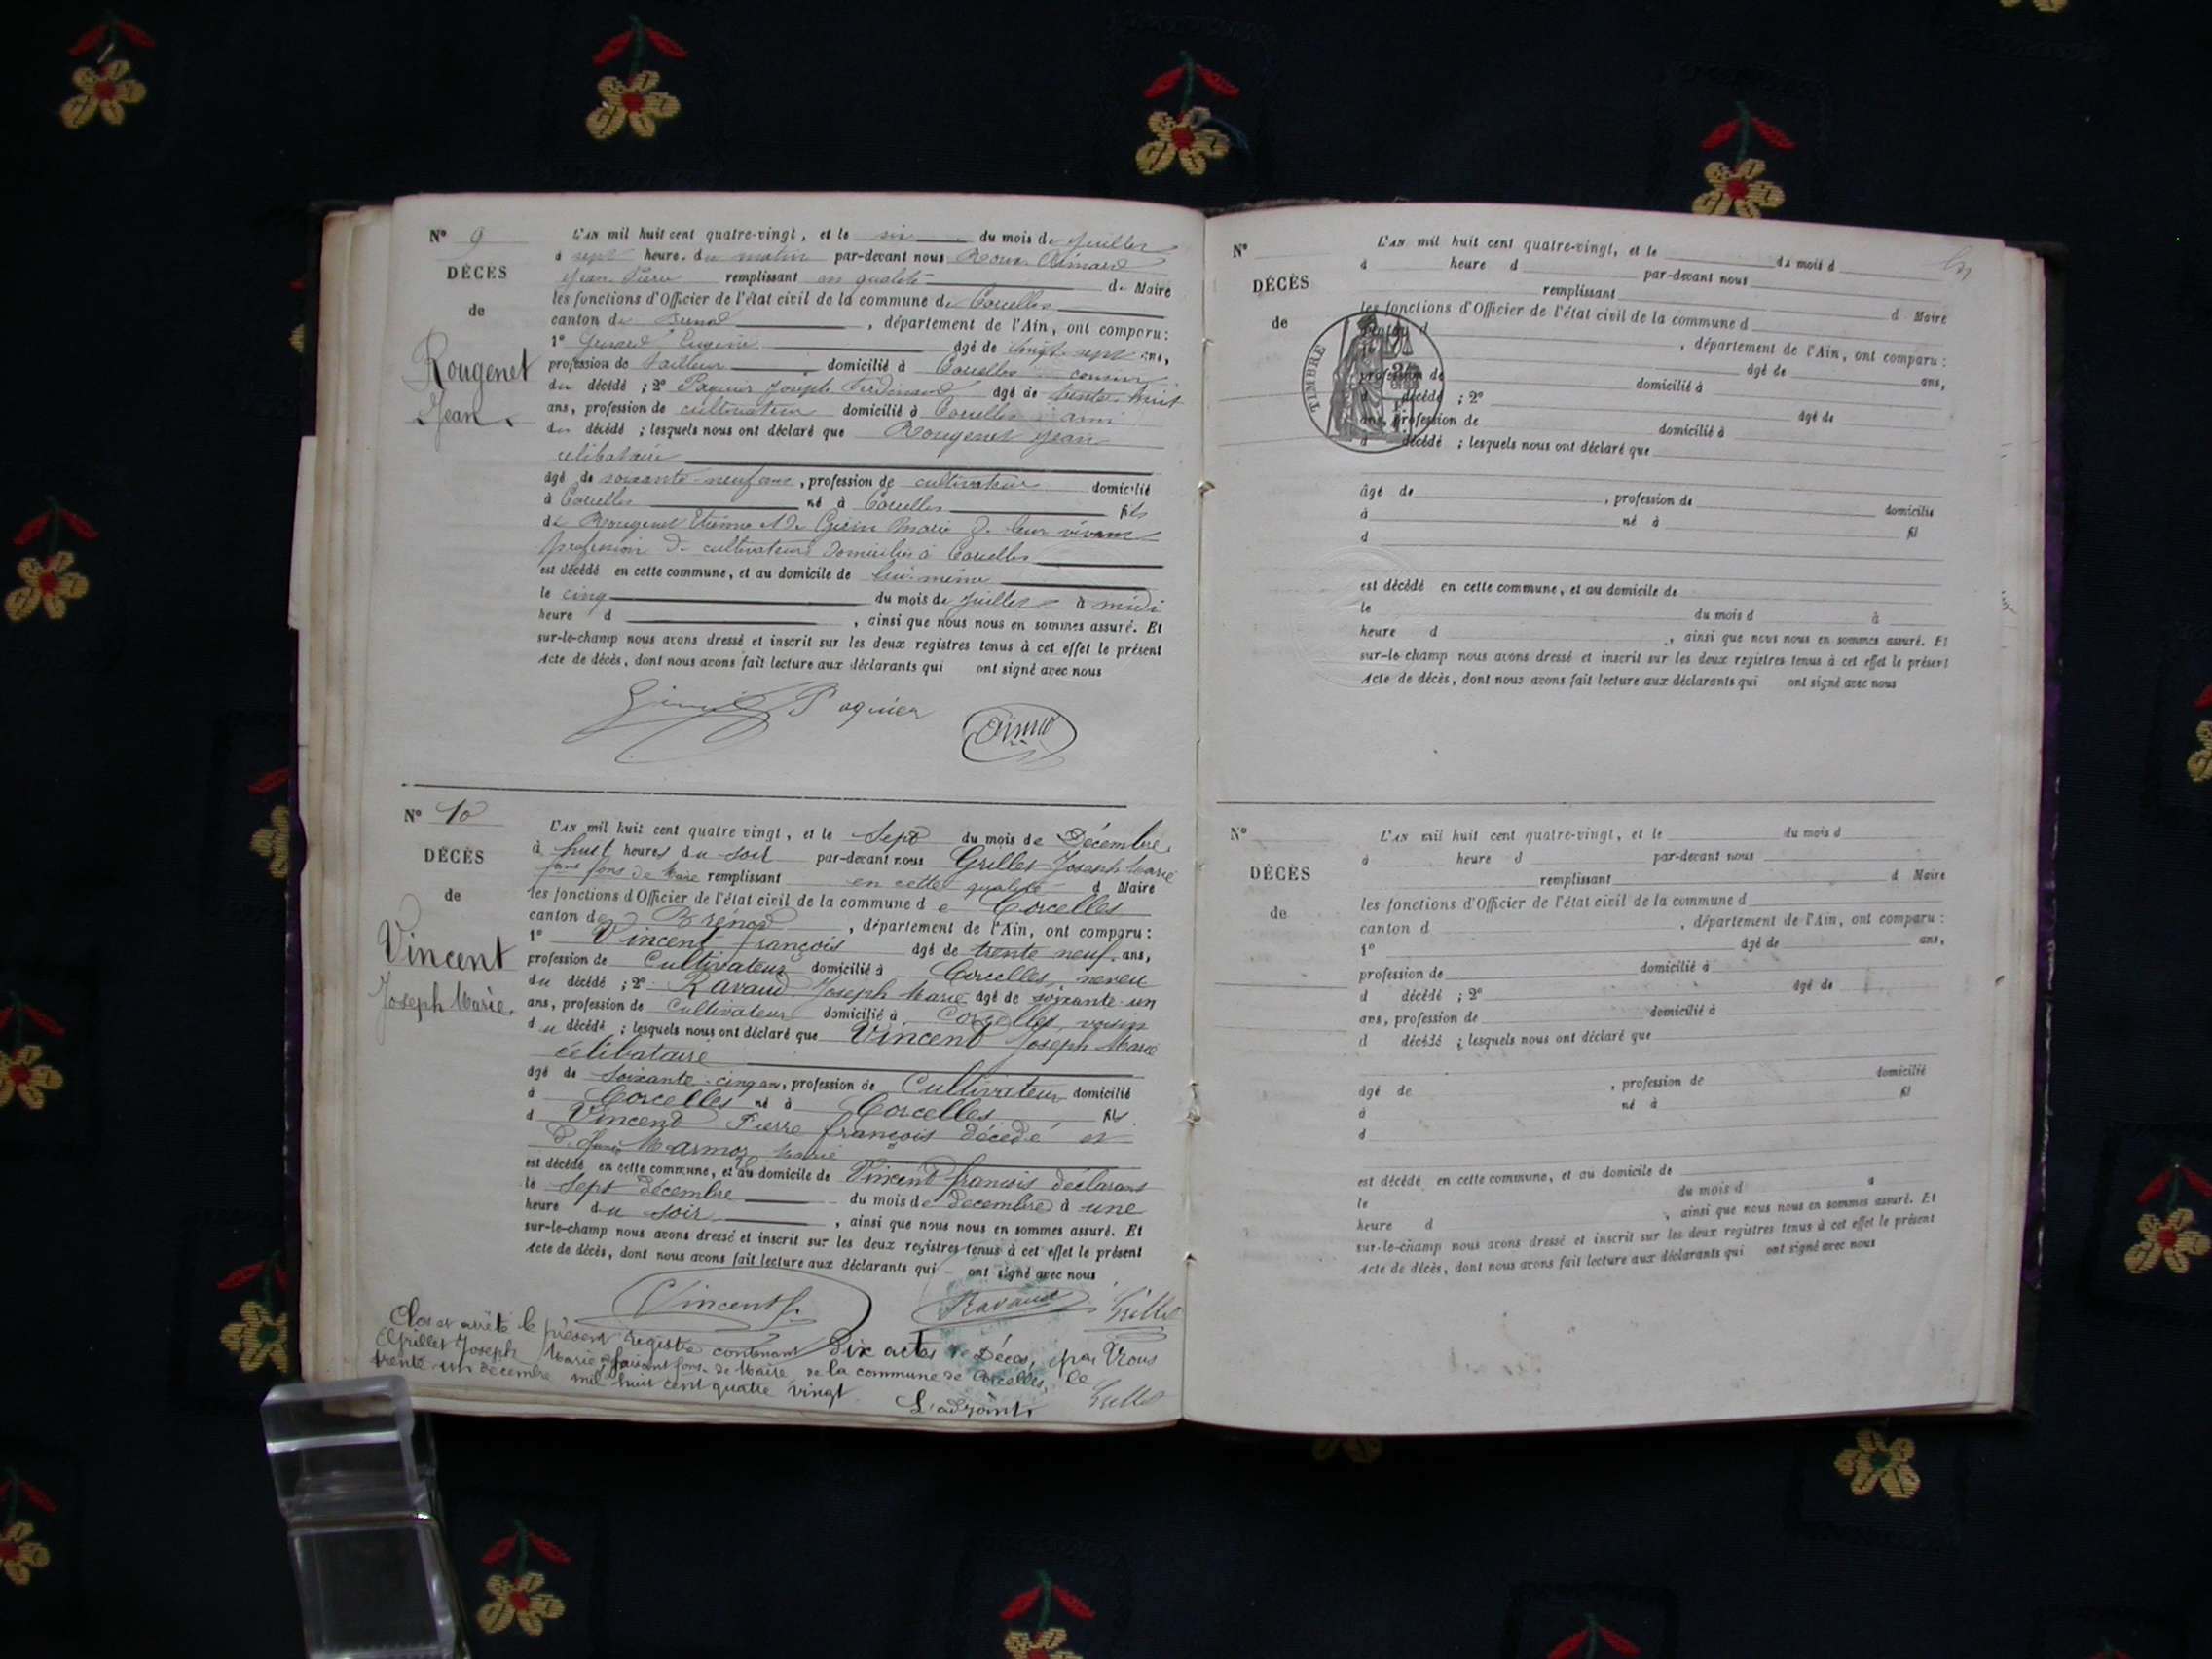 N° 9
DÉCÈS
de
Rougenet
Jean
L'AN mil huit cent quatre-vingt, et le six du mois de Juillet
à sept heure. du matin par-devant nous Roux Aimard
Jean Pierre remplissant en qualité de Maire
les fonctions d'Officier de l'état civil de la commune de Corcelles
canton de Brenod, département de l'Ain, ont comparu:
1° Eugène âgé de vingt sept ans,
profession de tailleur domicilié à Corcelles cousin
du décédé ; 2° Paquier Joseph Ferdinand âgé de trente huit
ans, profession de cultivateur domicilié à Corcelles ami
du décédé ; lesquels nous ont déclaré que Rougenet Jean
célibataire
âgé de soixante-neuf ans, profession de cultivateur domicilié
à Corcelles né à Corcelles fils
de Rougenet Etienne et de Marie de leur vivant
profession de cultivateurs domiciliés à Corcelles
est décédé en cette commune, et au domicile de lui-même
le cinq du mois de Juillet à midi
heure d , ainsi que nous nous en sommes assuré. Et
sur-le-champ nous avons dressé et inscrit sur les deux registres tenus à cet effet le présent
Acte de décès, dont nous avons fait lecture aux déclarants qui ont signé avec nous
Paquier
N° 10
DÉCÈS
de
Vincent
Joseph Marie.
L'AN mil huit cent quatre vingt, et le Sept du mois de Décembre,
à huit heures du soir par-devant nous Grillet Joseph Marie
fons de Maire remplissant en cette qualité d Maire
les fonctions d'Officier de l'état civil de la commune de Corcelles
canton de Brénod, département de l'Ain, ont comparu:
1° Vincent françois âgé de trente neuf ans,
profession de Cultivateur domicilié à Corcelles, neveu
du décédé ; 2° Ravaud Joseph Marie âgé de soixante-un
ans, profession de Cultivateur domicilié à Corcelles, voisin
du décédé ; lesquels nous ont déclaré que Vincent Joseph Marie
célibataire
âgé de soixante-cinq ans, profession de Cultivateur domicilié
à Corcelles né à Corcelles fils
d Vincent Pierre françois décédé et
Marie
est décédé en cette commune, et au domicile de Vincent françois déclarant
le Sept décembre du mois de décembre à une
heure du soir, ainsi que nous nous en sommes assuré. Et
sur-le-champ nous avons dressé et inscrit sur les deux registres tenus à cet effet le présent
Acte de décès, dont nous avons fait lecture aux déclarants qui ont signé avec nous
Vincent f. Ravaud Grillet
Clos et arrêté le présent registre contenant Dix actes de Décès, par Nous
Grillet Joseph Marie, faisant fons de Maire de la commune de Corcelles, le
trente-un décembre mil huit cent quatre vingt
L'adjoint, Grillet
N°
DÉCÈS
de
L'AN mil huit cent quatre-vingt, et le du mois d
à heure d par-devant nous
remplissant d Maire
les fonctions d'Officier de l'état civil de la commune d
canton d , département de l'Ain, ont comparu:
TIMBRE
âgé de ans,
profession de domicilié à
d décédé ; 2° âgé de
ans, profession de domicilié à
d décédé ; lesquels nous ont déclaré que
âgé de , profession de domicilié
à né à fil
d
est décédé en cette commune, et au domicile de
le du mois d à
heure d , ainsi que nous nous en sommes assuré. Et
sur-le-champ nous avons dressé et inscrit sur les deux registres tenus à cet effet le présent
Acte de décès, dont nous avons fait lecture aux déclarants qui ont signé avec nous
N°
DÉCÈS
de
L'AN mil huit cent quatre-vingt, et le du mois d
à heure d par-devant nous
remplissant d Maire
les fonctions d'Officier de l'état civil de la commune d
canton d , département de l'Ain, ont comparu:
1° âgé de ans,
profession de domicilié à
d décédé ; 2° âgé de
ans, profession de domicilié à
d décédé ; lesquels nous ont déclaré que
âgé de , profession de domicilié
à né à fil
d
est décédé en cette commune, et au domicile de
le du mois d à
heure d , ainsi que nous nous en sommes assuré. Et
sur-le-champ nous avons dressé et inscrit sur les deux registres tenus à cet effet le présent
Acte de décès, dont nous avons fait lecture aux déclarants qui ont signé avec nous